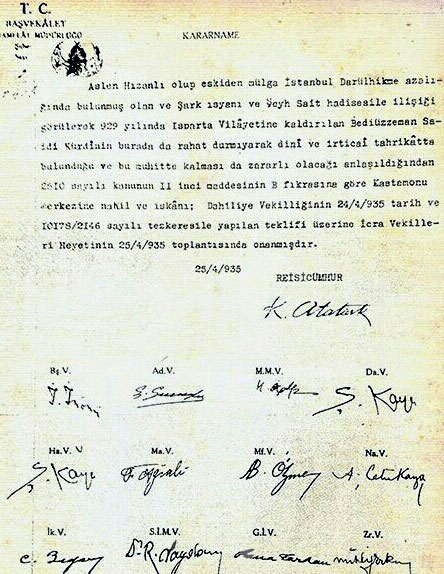 T. C.
BAŞVEKÂLET
MUAMELÂT MÜDÜRLÜĞÜ
KARARNAME
Aslen Hızanlı olup eskiden mülga İstanbul Darülhikme azalı-
ğında bulunmuş olan ve Şark isyanı ve Şeyh Sait hadisesile ilişiği
görülerek 929 yılında Isparta Vilâyetine kaldırılan Bediüzzeman Sa-
idi Kürdînin burada da rahat durmıyarak dinî ve irticaî tahrikâtta
bulunduğu ve bu muhitte kalması da zararlı olacağı anlaşıldığından
2510 sayılı kanunun II inci meddesinin B fıkrasına göre Kastamonu
merkezine nakil ve iskânı; Dahiliye Vekilliğinin 24/4/935 tarih ve
10178/2146 sayılı tezkeresile yapılan teklifi üzerine İcra Vekille-
ri Heyetinin 25/4/935 toplantısında onanmışdır.
25/4/935
REİSİCÜMHUR
K. Atatürk
Bş.V. Ad.V. M.M.V. Da.V.
Ş. Kaya
Ha.V. Ma.V. Mf.V. Na.V.
Ş. Kaya A. Çetinkaya
İk.V. S.İ.M.V. G.İ.V. Zr.V.